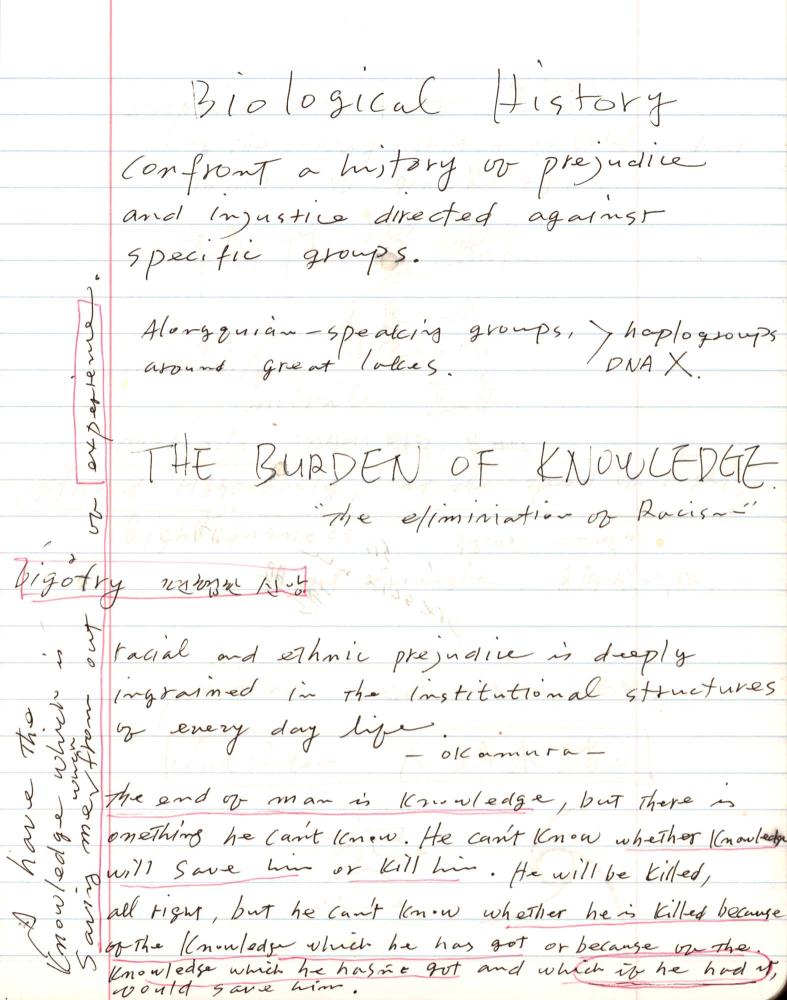 Biological History
Confront a history of prejudice
and injustice directed against
specific groups.
Alorgquian-speaking groups, > haplogroups
around great lakes. DNA X.
THE BURDEN OF KNOWLEDGE
"The eliminiation of Racism"
bigotry 신앙
racial and ethnic prejudice is deeply
ingrained in the institutional structures
of every day life.
- okamura -
The end of man is knowledge, but there is
onething he can't know. He can't know whether knowledge
will save him or kill him. He will be killed,
all right, but he can't know whether he is killed because
of the knowledge which he has got or because of the
knowledge which he hasn't got and which if he had it,
would save him.
I have the
knowledge which is
saving me from out of experience.